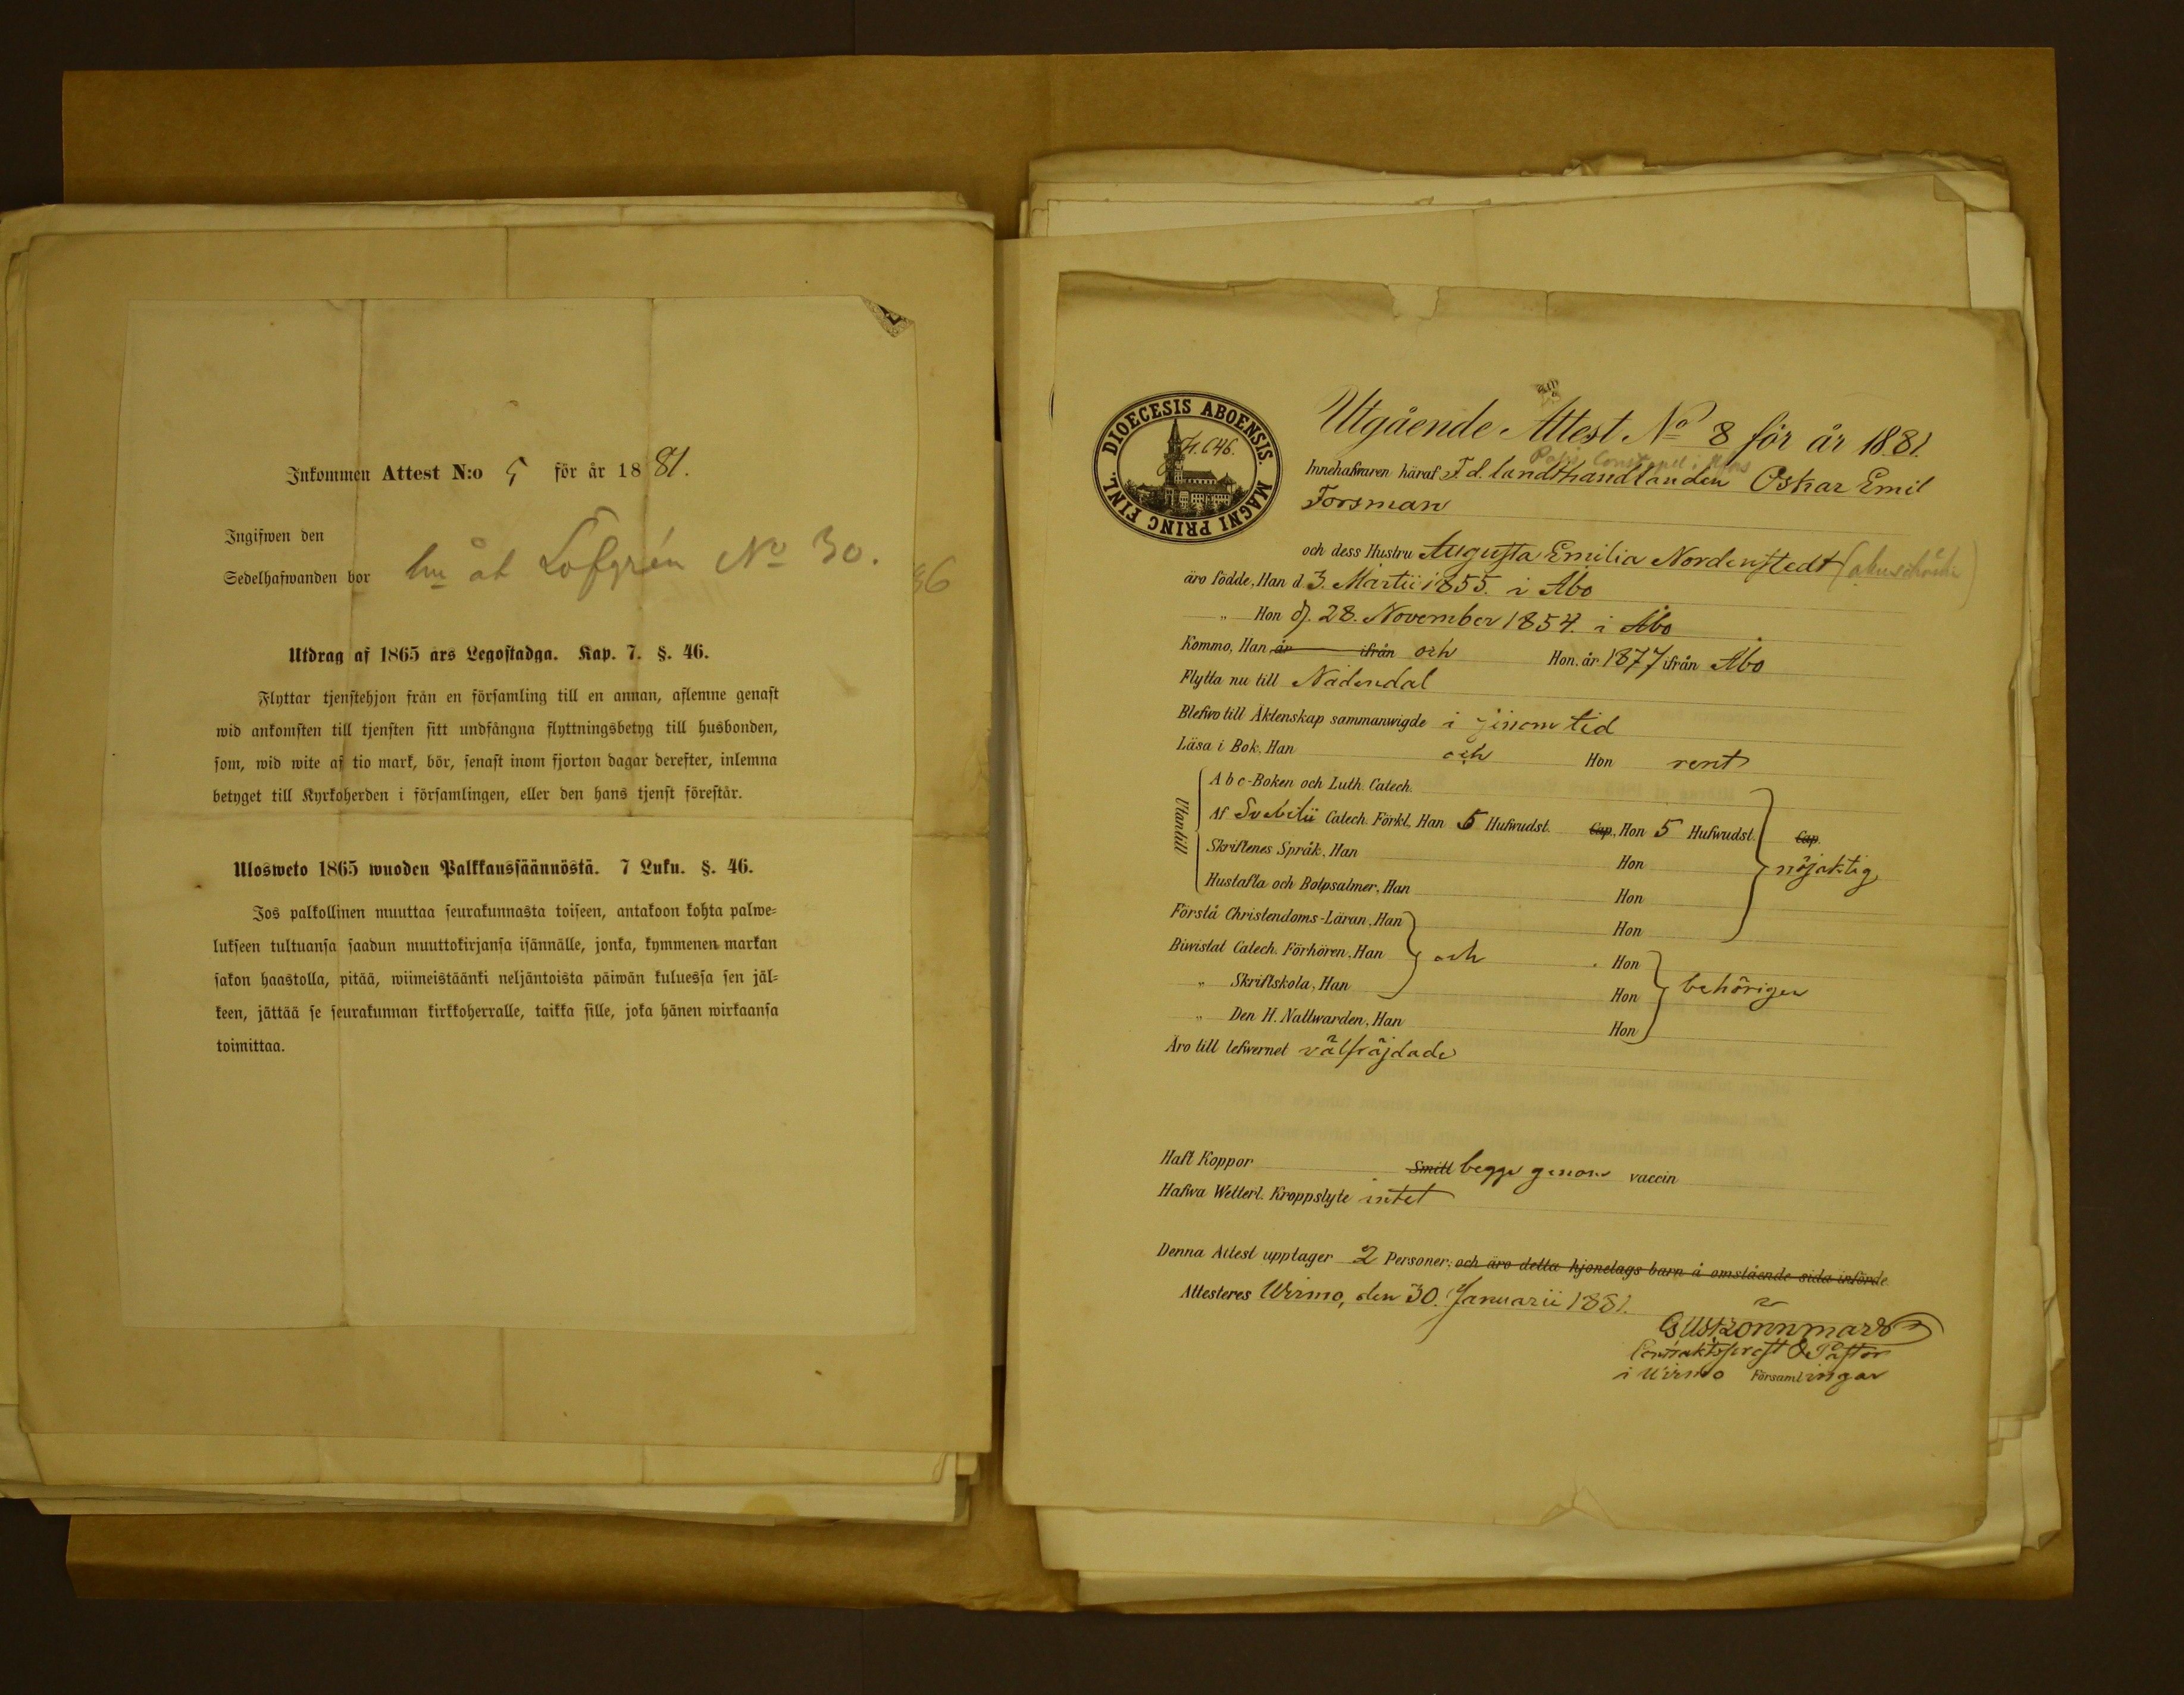 Inkommen Attest N:o 5 för år 1881.
Ingifwen den
Sedelhafwanden bor hu åt Löfgrén No 30.
36
Utdrag af 1865 års Legostadga. Kap. 7. §. 46.
Flyttar tjenstehjon från en församling till en annan, aflemne genast
wid ankomsten till tjensten sitt undfångna flyttningsbetyg till husbonden,
som, wid wite af tio mark, bör, senast inom fjorton dagar derefter, inlemna
betyget till Kyrkoherden i församlingen, eller den hans tjenst förestår.
Ulosweto 1865 wuoden Palkkaussäännöstä. 7 Luku. §. 46.
Jos palkollinen muuttaa seurakunnasta toiseen, antakoon kohta palwe-
lukseen tultuansa saadun muuttokirjansa isännälle, jonka, kymmenen markan
sakon haastolla, pitää, wiimeistäänki neljäntoista päiwän kuluessa sen jäl-
keen, jättää se seurakunnan kirkkoherralle, taikka sille, joka hänen wirkaansa
toimittaa.
DIOECESIS ABOENSIS. MAGNI PRINC FINL.
Utgående Attest No 8 för år 1881.
Innehafwaren häraf F.d. landthandlanden Oskar Emil
Forsman
och dess Hustru Augusta Emilia Nordenstedt
äro födde, Han d 3. Martii 1855. i Åbo
" Hon d. 28. November 1854. i Åbo
Kommo, Han år ifrån och Hon. år 1877 ifrån Åbo
Flytta nu till Nådendal
Blefwo till Äktenskap sammanwigde i sinom tid
Läsa i Bok, Han och Hon rent
Utantill
A b c-Boken och Luth. Catech.
Af Svebilii Catech. Förkl., Han 5 Hufwudst. Cap., Hon 5 Hufwudst. Cap.
Skriftenes Språk, Han Hon nöjaktig
Hustafla och Botpsalmer, Han Hon
Förstå Christendoms-Läran, Han Hon
Biwistat Catech. Förhören, Han och Hon
" Skriftskola, Han Hon behörigen
" Den H. Nattwarden, Han Hon
Äro till lefwernet välfräjdade
Haft Koppor Smitt begge genom vaccin
Hafwa Wetterl. Kroppslyte intet
Denna Attest upptager 2 Personer; och äro detta hjonelags barn å omstående sida införde
Attesteras Wirmo, den 30. Januarii 1881.
Contraktsprost & Pastor
i Wirmo Församlingar